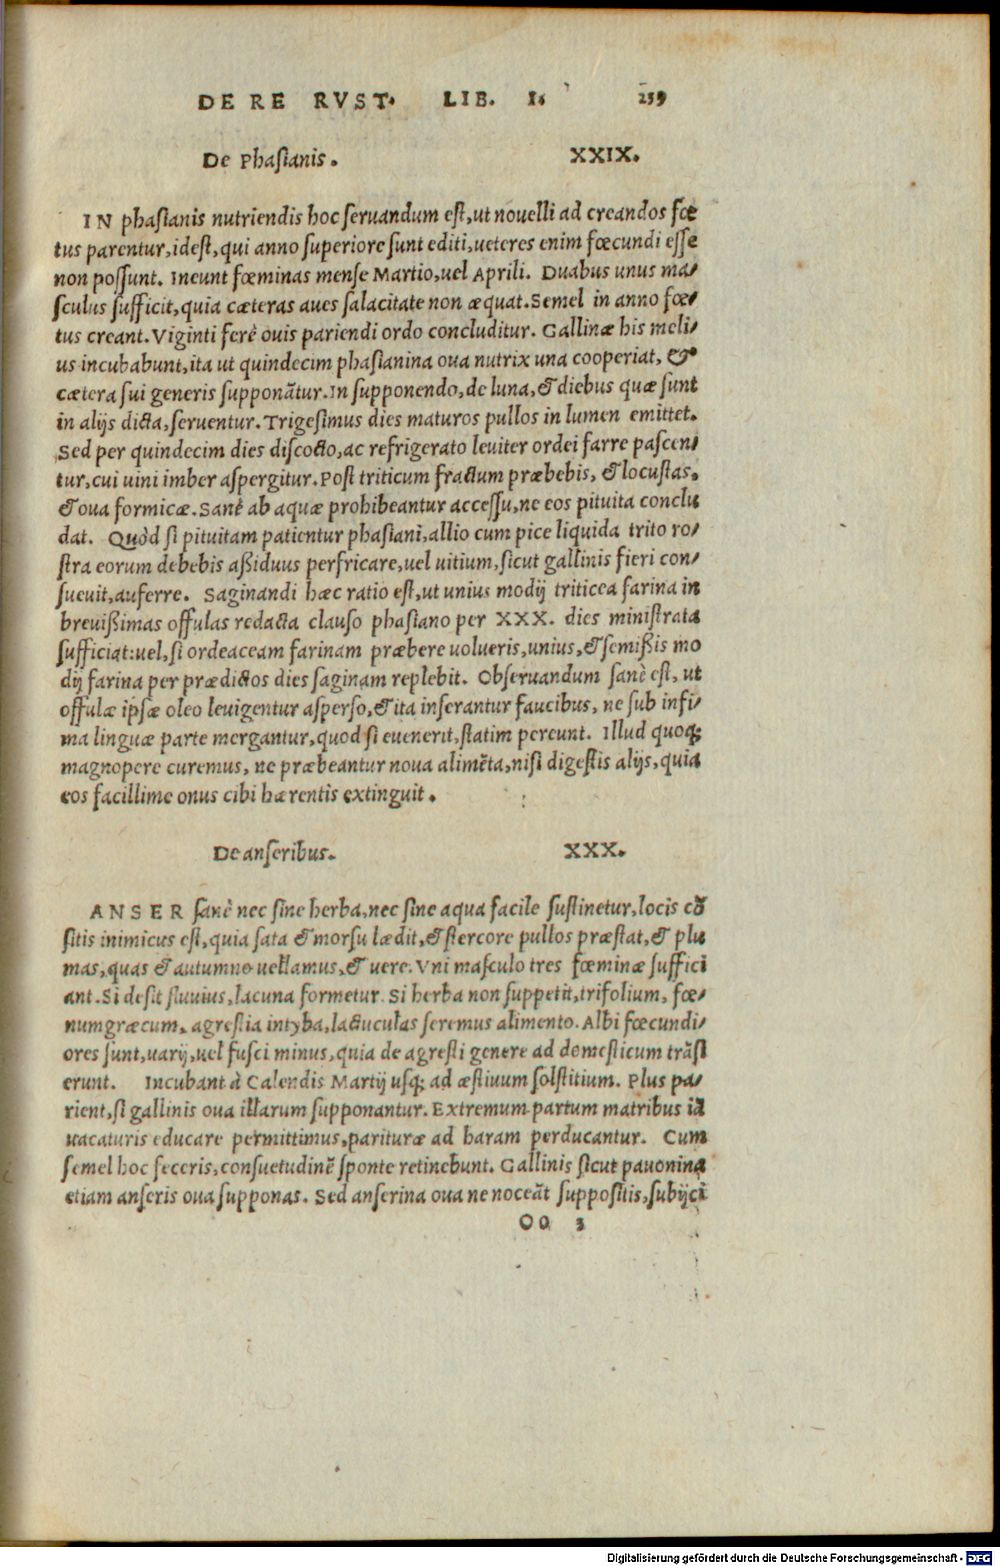 DE RE RVST. LIB. I. 259
De Phasianis. XXIX.
IN phasianis nutriendis hoc seruandum est, ut nouelli ad creandos fœ
tus parentur, idest, qui anno superiore sunt editi, ueteres enim fœcundi esse
non possunt. Ineunt fœminas mense Martio, uel Aprili. Duabus unus ma-
sculus sufficit, quia cæteras aues salacitate non æquat. Semel in anno fœ-
tus creant. Viginti ferè ouis pariendi ordo concluditur. Gallinæ his meli-
us incubabunt, ita ut quindecim phasianina oua nutrix una cooperiat, &
cætera sui generis supponãtur. In supponendo, de luna, & diebus quæ sunt
in alijs dicta, seruentur. Trigesimus dies maturos pullos in lumen emittet.
Sed per quindecim dies discocto, ac refrigerato leuiter ordei farre pascen-
tur, cui uini imber aspergitur. Post triticum fractum præbebis, & locustas,
& oua formicæ. Sanè ab aquæ prohibeantur accessu, ne eos pituita conclu
dat. Quòd si pituitam patientur phasiani, allio cum pice liquida trito ro-
stra eorum debebis aßiduus perfricare, uel uitium, sicut gallinis fieri con-
sueuit, auferre. Saginandi hæc ratio est, ut unius modij triticea farina in
breuißimas offulas redacta clauso phasiano per XXX. dies ministrata
sufficiat: uel, si ordeaceam farinam præbere uolueris, unius, & semißis mo
dij farina per prædictos dies saginam replebit. Obseruandum sanè est, ut
offulæ ipsæ oleo leuigentur asperso, & ita inserantur faucibus, ne sub infi-
ma linguæ parte mergantur, quod si euenerit, statim pereunt. Illud quoq;
magnopere curemus, ne præbeantur noua alimẽta, nisi digestis alijs, quia
eos facillime onus cibi hærentis extinguit.
De anseribus. XXX.
ANSER sanè nec sine herba, nec sine aqua facile sustinetur, locis cõ
sitis inimicus est, quia sata & morsu lædit, & stercore pullos præstat, & plu
mas, quas & autumno uellamus, & uere. Vni masculo tres fœminæ suffici
ant. Si desit fluuius, lacuna formetur. Si herba non suppetit, trifolium, fœ-
numgræcum, agrestia intyba, lactuculas seremus alimento. Albi fœcundi-
ores sunt, uarij, uel fusci minus, quia de agresti genere ad domesticum trãsi
erunt. Incubant à Calendis Martij usq; ad æstiuum solstitium. Plus pa-
rient, si gallinis oua illarum supponantur. Extremum partum matribus iã
uacaturis educare permittimus, parituræ ad haram perducantur. Cum
semel hoc feceris, consuetudinẽ sponte retinebunt. Gallinis sicut pauonina
etiam anseris oua supponas. Sed anserina oua ne noceãt suppositis, subijci
OO 3
Digitalisierung gefördert durch die Deutsche Forschungsgemeinschaft - DFG